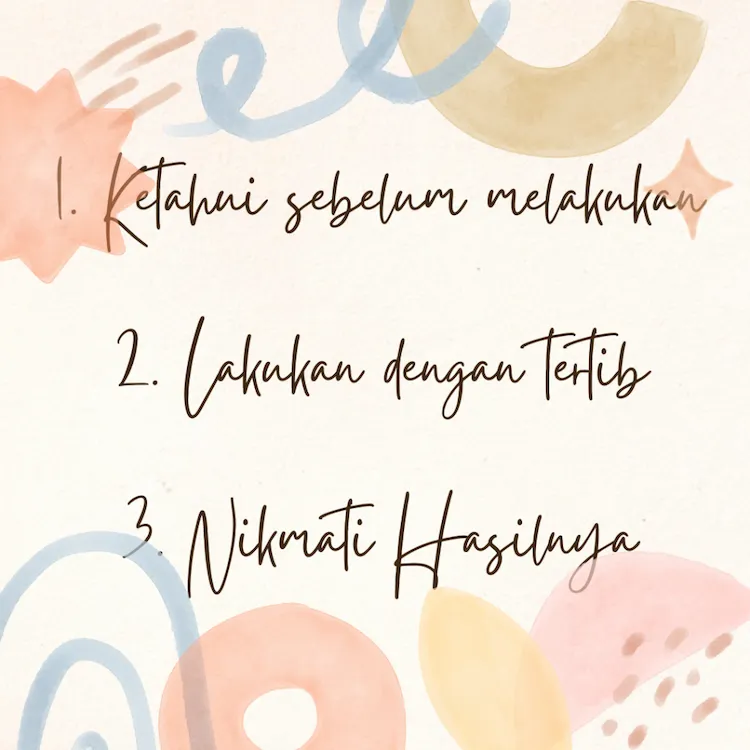 1. Ketahui sebelum melakukan
2. Lakukan dengan tertib
3. Nikmati Hasilnya